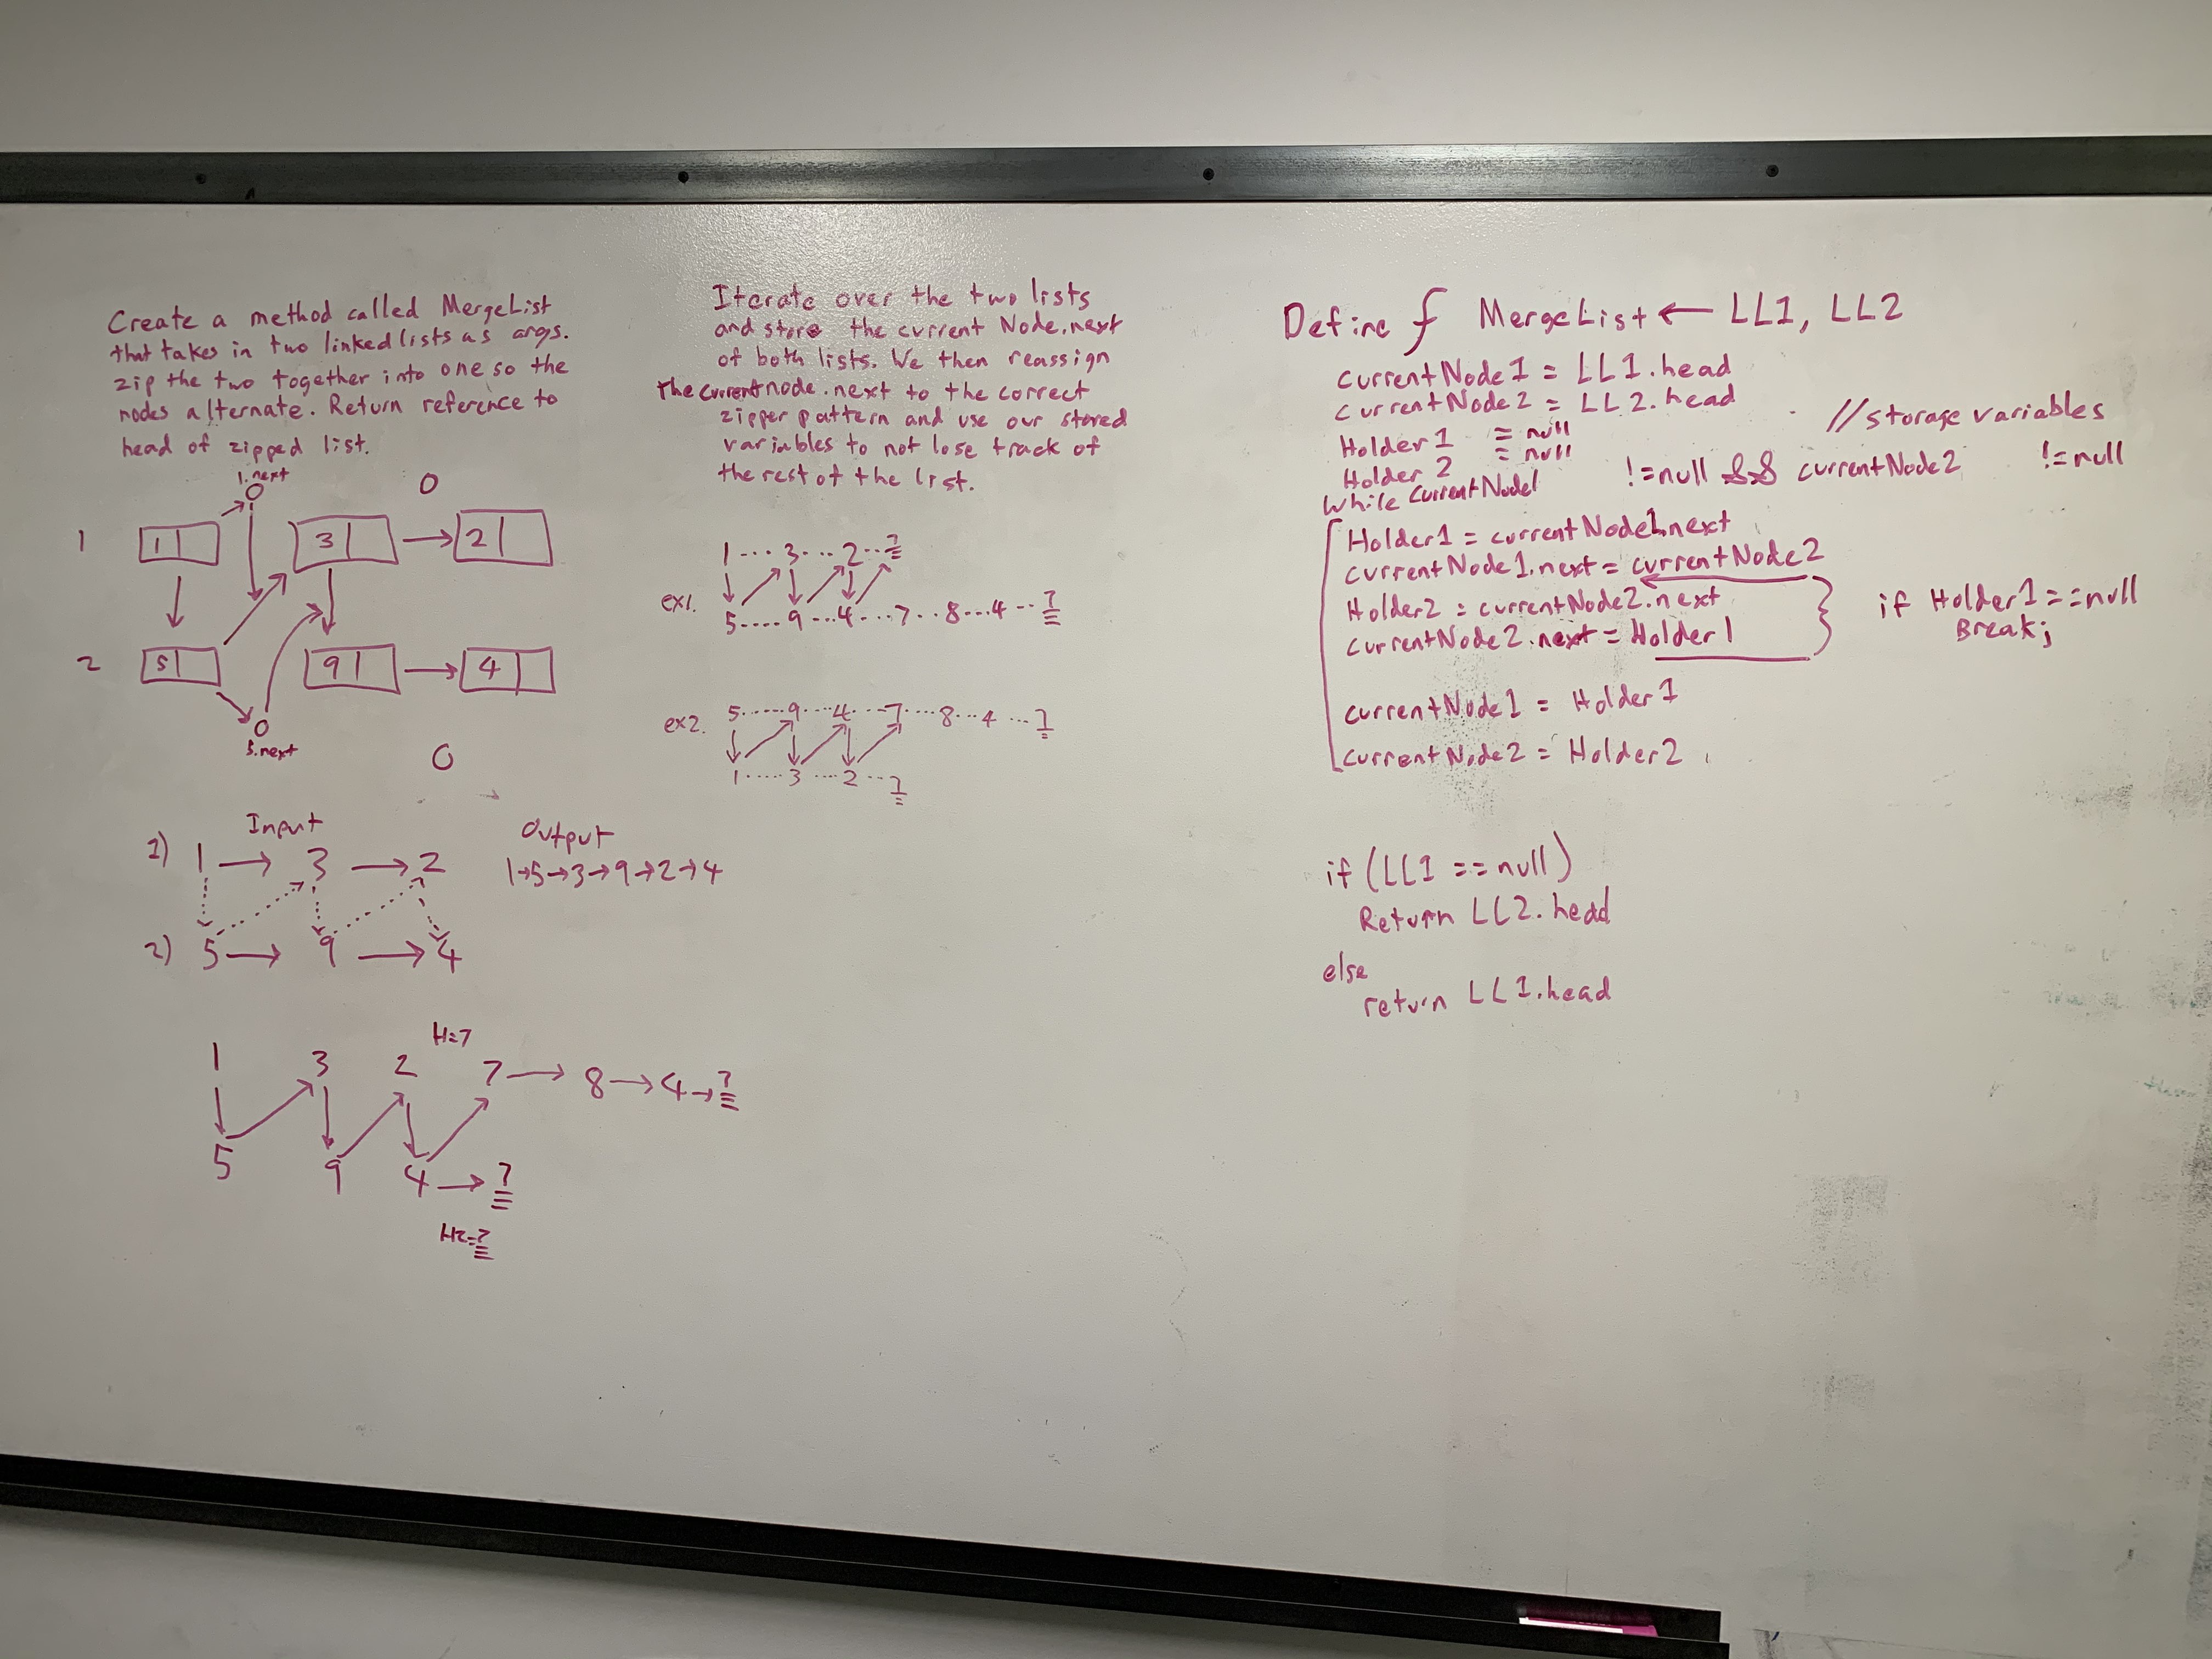 Create a method called MergeList
that takes in two linked lists as args.
zip the two together into one so the
nodes alternate. Return reference to
head of zipped list.
1.next
0
0
1
1
3
2
2
5
9
4
0
5.next
0
Input
Output
1)
1
3
2
1→5→3→9→2→4
2)
5
9
4
H=7
1
3
2
7
8
4
5
9
4
Iterate over the two lists
and store the current Node.next
of both lists. We then reassign
the currentnode.next to the correct
zipper pattern and use our stored
variables to not lose track of
the rest of the list.
1 ... 3 ... 2 ..
ex1.
5 .... 9 ... 4 ... 7 .. 8 ... 4 ..
ex2.
5 ..... 9 .... 4 ... 7 .... 8 ... 4 ...
1 ..... 3 .... 2 ...
Define f MergeList ← LL1, LL2
currentNode1 = LL1.head
currentNode2 = LL2.head
//storage variables
Holder1 = null
Holder2 = null
while currentNode1 !=null && currentNode2 !=null
Holder1 = currentNode1.next
currentNode1.next = currentNode2
Holder2 = currentNode2.next
currentNode2.next = Holder1
if Holder1==null
Break;
currentNode1 = Holder1
currentNode2 = Holder2
if (LL1 ==null)
Return LL2.head
else
return LL1.head